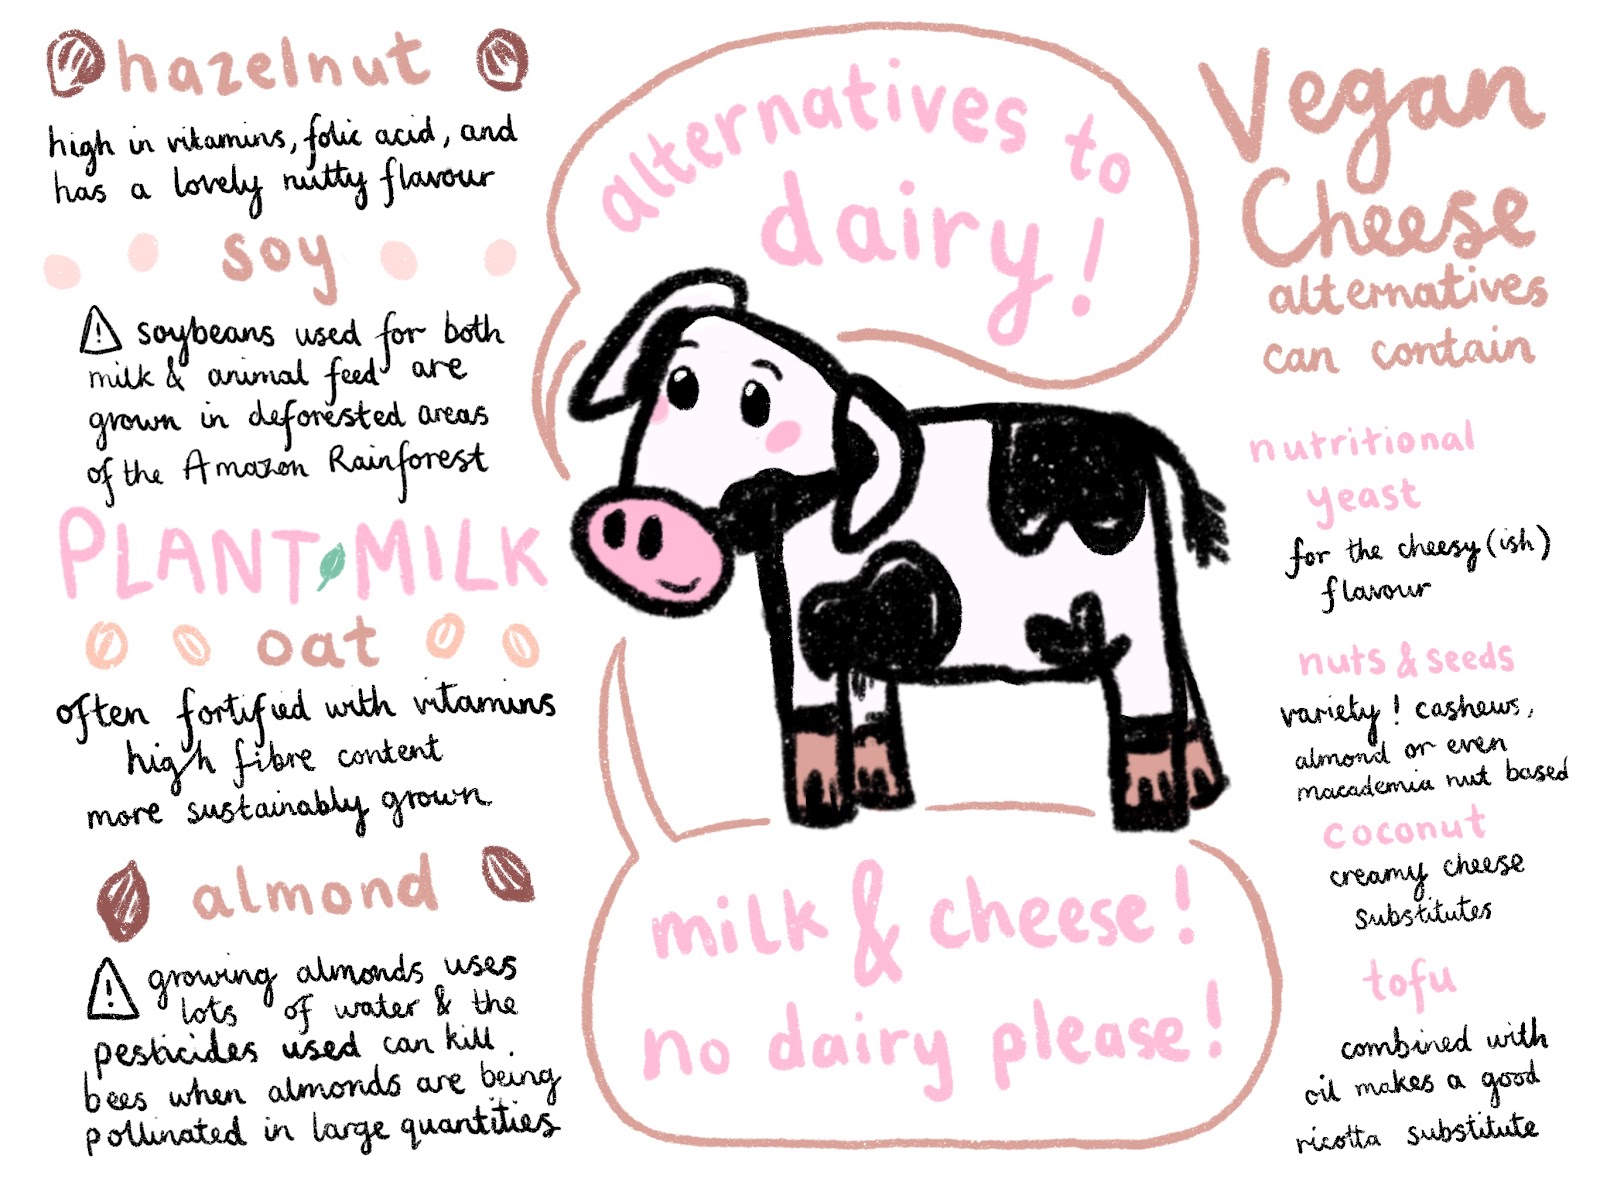 hazelnut
high in vitamins, folic acid, and
has a lovely nutty flavour
soy
soybeans used for both
milk & animal feed are
grown in deforested areas
of the Amazon Rainforest
PLANT MILK
oat
often fortified with vitamins
high fibre content
more sustainably grown
almond
growing almonds uses
lots of water & the
pesticides used can kill
bees when almonds are being
pollinated in large quantities
alternatives to
dairy!
milk & cheese!
no dairy please!
Vegan
Cheese
alternatives
can contain
nutritional
yeast
for the cheesy (ish)
flavour
nuts & seeds
variety! cashews,
almond or even
macademia nut based
coconut
creamy cheese
substitutes
tofu
combined with
oil makes a good
ricotta substitute